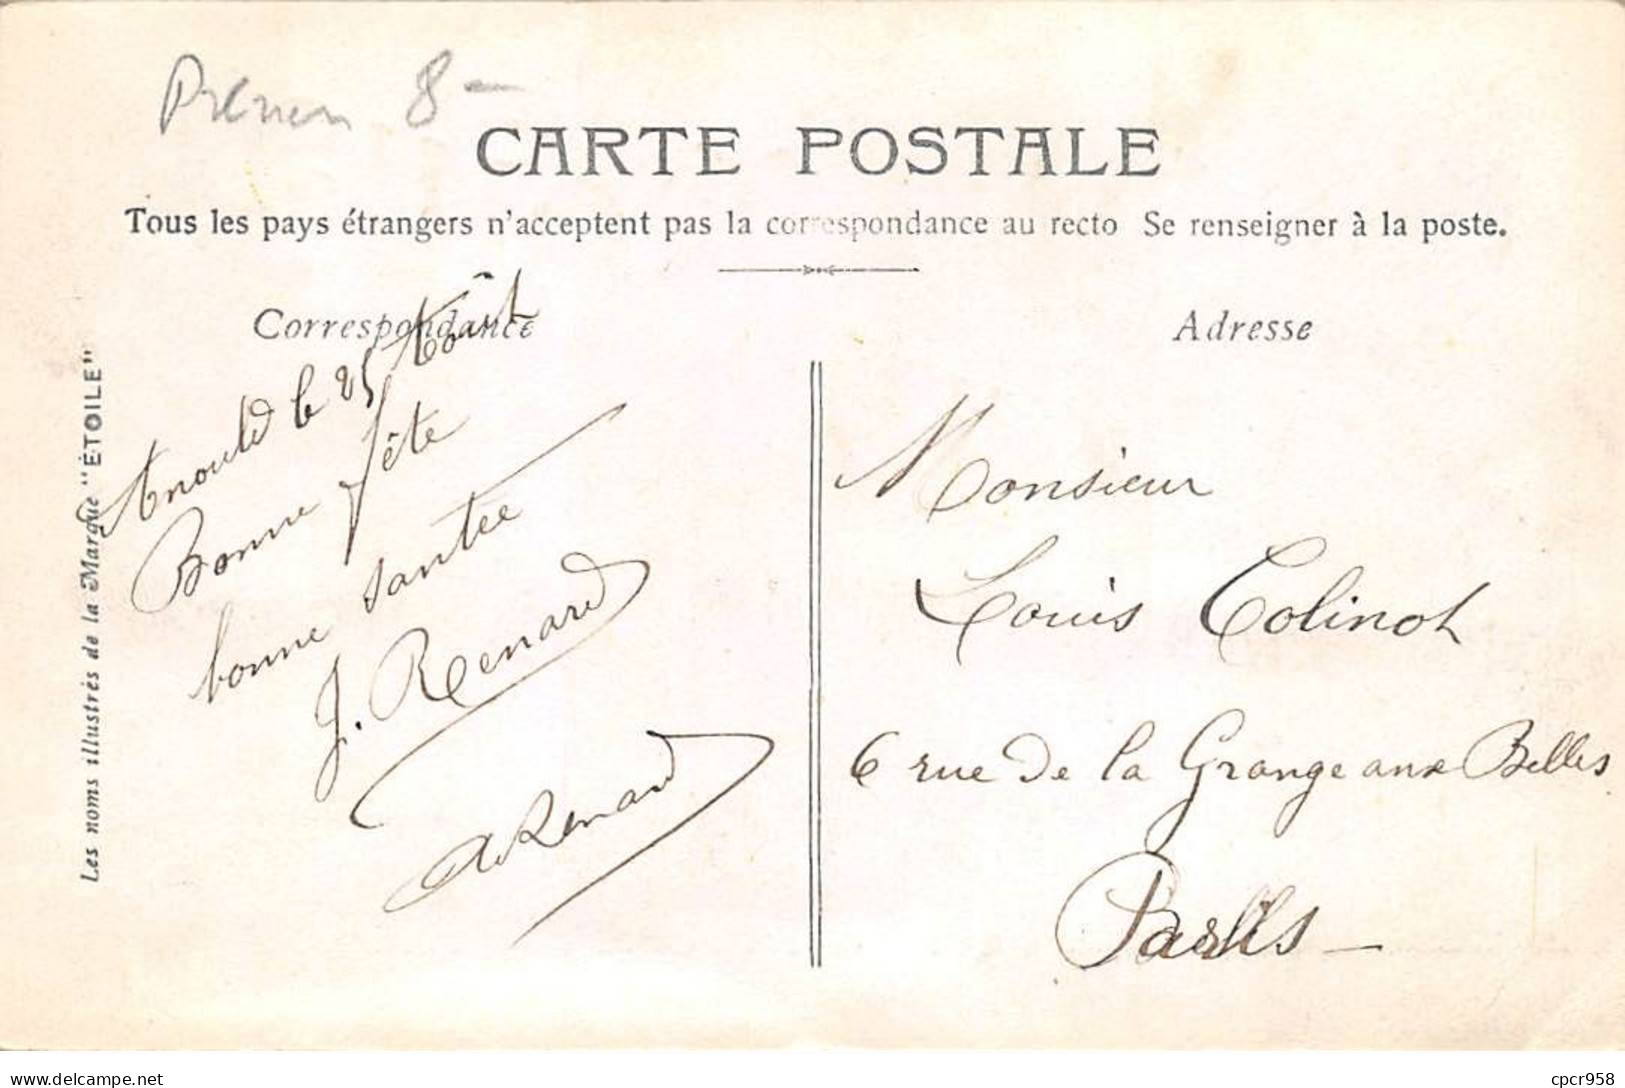 Prénom 8 -
CARTE POSTALE
Tous les pays étrangers n'acceptent pas la correspondance au recto Se renseigner à la poste.
Correspondance
Anould le 25 Août
Bonne fête
bonne santée
J. Renard
A Renard
Les noms illustrés de la Marque "ÉTOILE"
Adresse
Monsieur
Louis Colinot
6 rue de la Grange aux Belles
Paris
delcampe.net
cpcr958